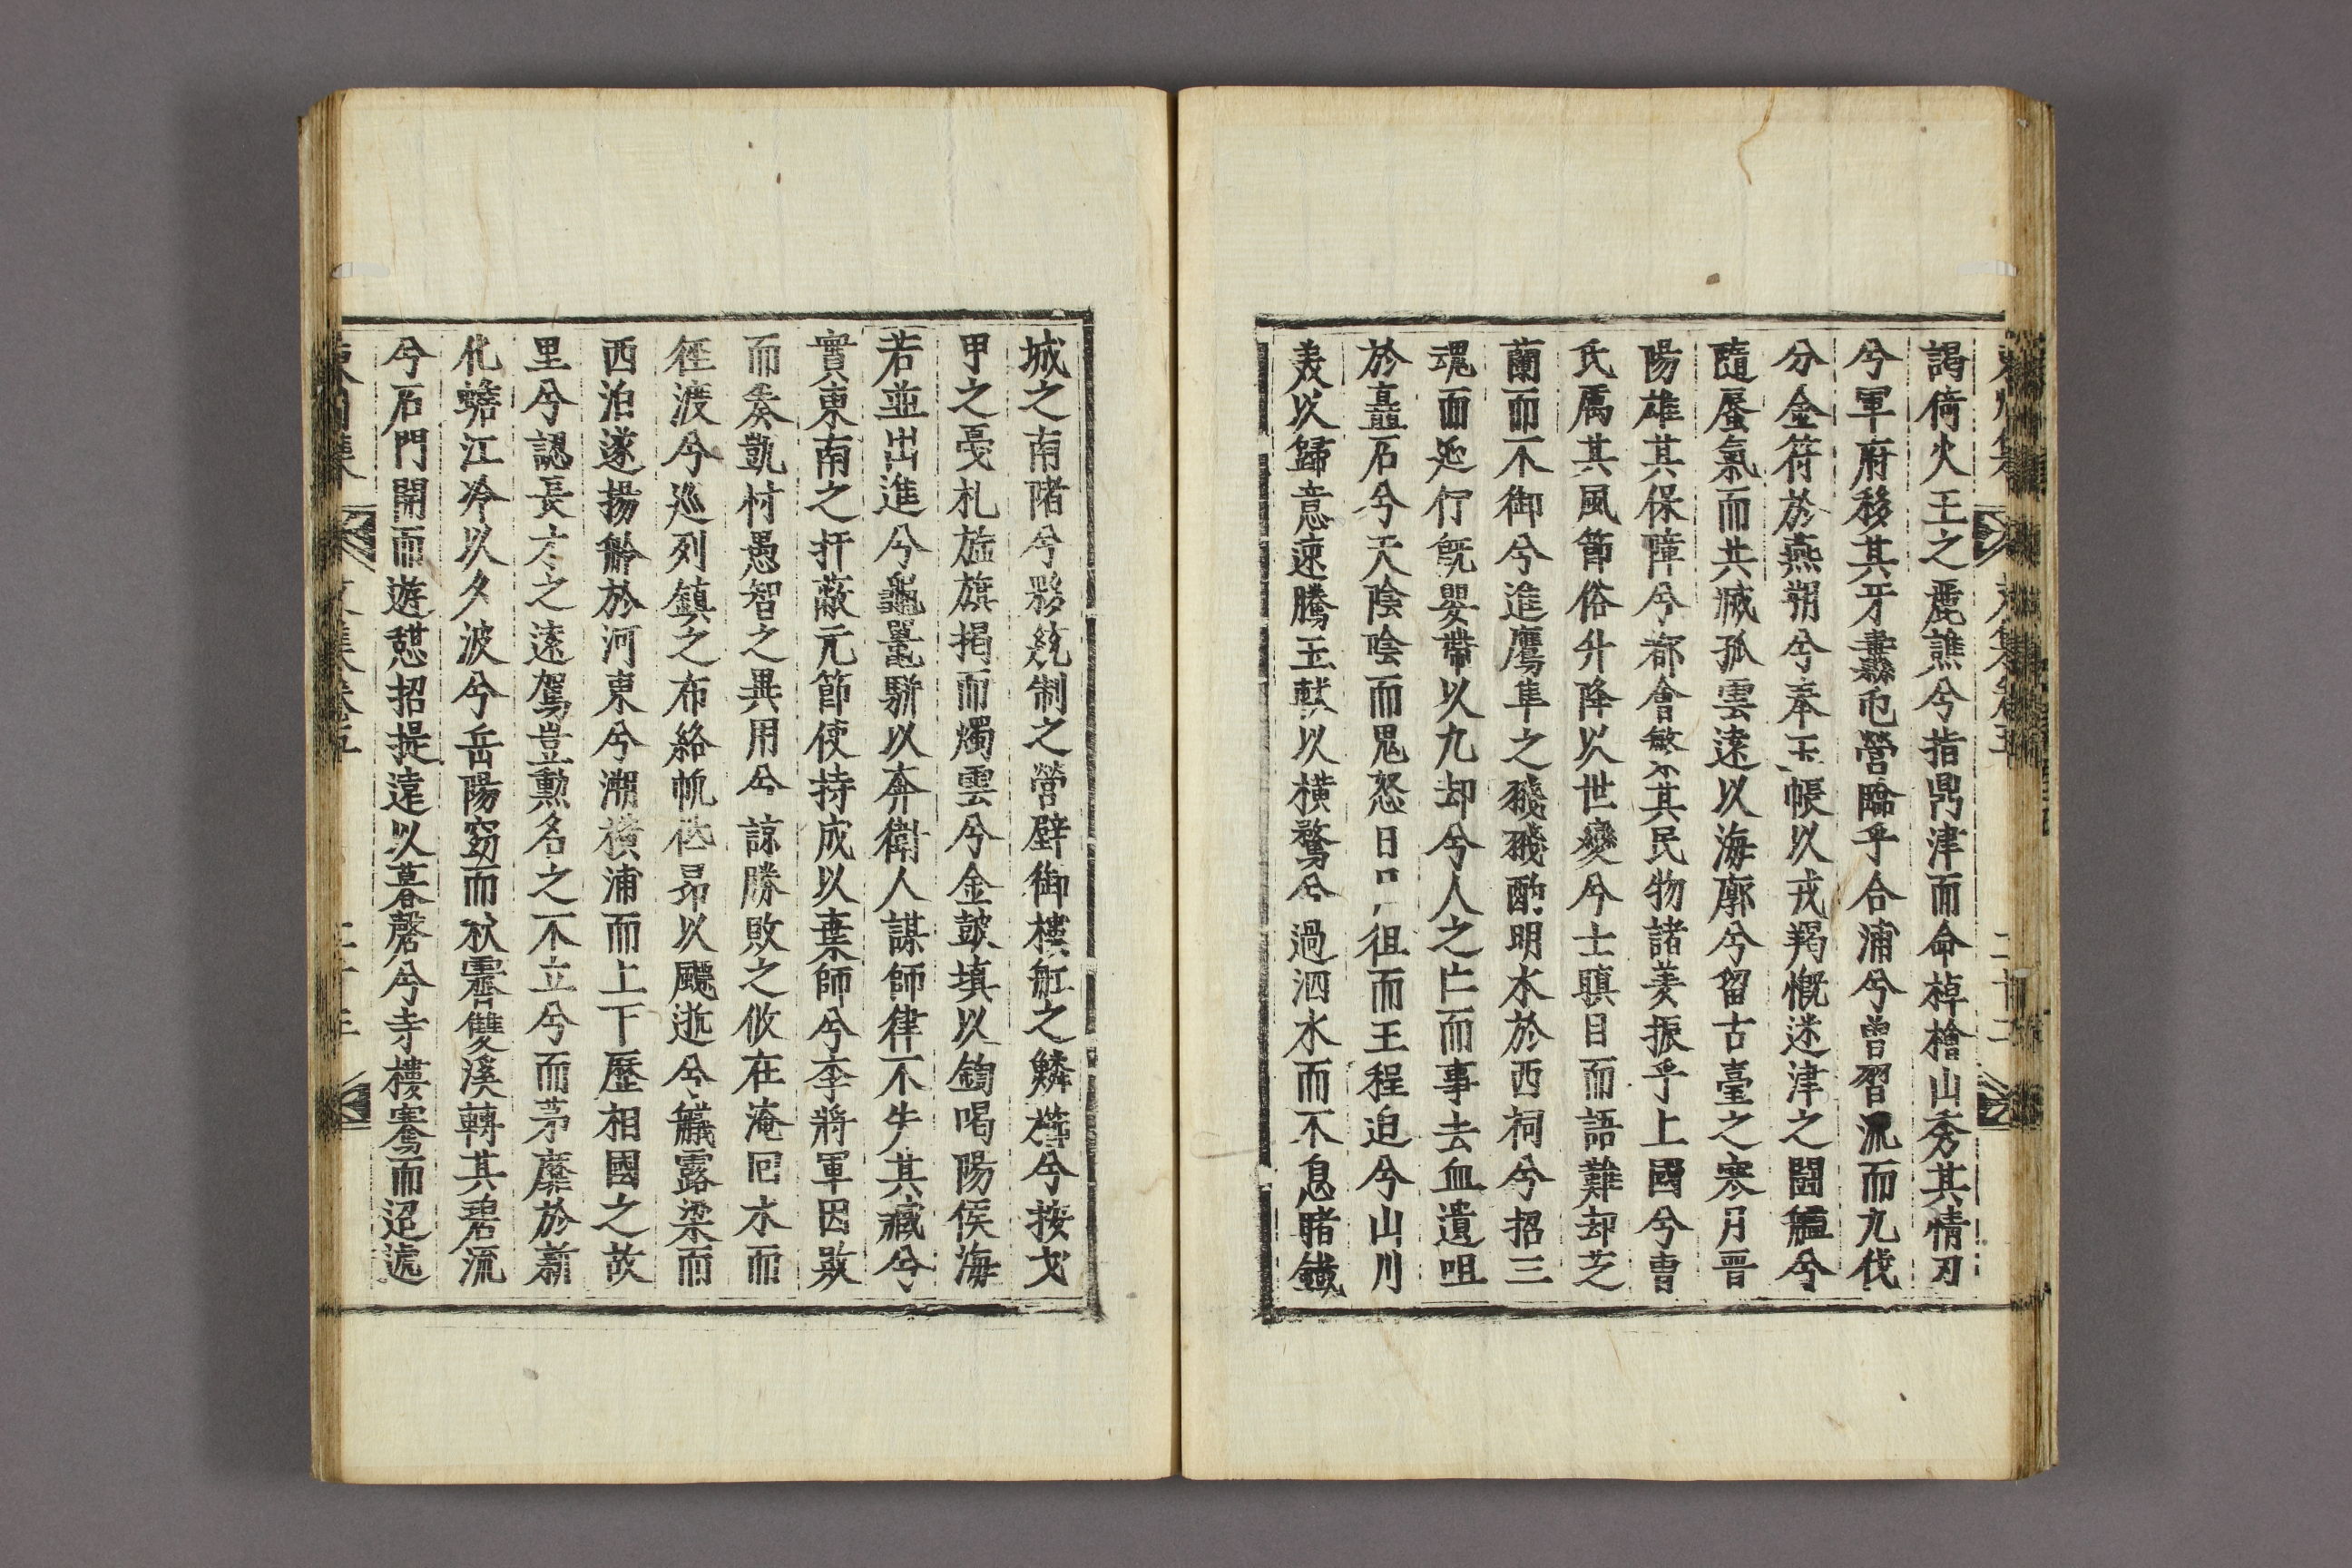 謁倚火王之麗譙兮指鼎津而命棹檜山秀其情刃
兮軍府移其牙纛黽營臨乎合浦兮曾習流而九伐
分金符於燕朔兮奉玉帳以戎羯慨迷津之鬪艫兮
隨蜃氣而共滅孤雲逺以海廓兮留古臺之寒月晋
陽雄其保障兮都會繁其民物諸姜振乎上國兮曹
氏厲其風節俗升降以世變兮士瞋目而語難却芝
蘭而不御兮進鷹隼之殘殘酌明水於西祠兮招三
魂而延佇旣嬰帶以九却兮人之亡而事去血遺咀
於矗石兮天陰陰而鬼怒日 徂而王程迫兮山川
羙以歸意速騰玉轪以横騖兮過泗水而不息睹鐵
城之南陼兮夥統制之營壁御樓舡之鱗櫛兮按戈
甲之戞札旌旗揭而燭雲兮金鼓填以鍧喝陽侯海
若並出進兮龜鼉駢以奔衛人謀師律不失其臧兮
實東南之扞蔽元節使持成以棄師兮李將軍因敗
而奏凱忖愚智之異用兮諒勝敗之攸在淹回水而
徑渡兮巡列鎮之布絡帆低昂以颺逝兮艤露梁而
西泊遂揚舲於河東兮溯橫浦而上下歷相國之故
里兮認長才之遠駕豈勲名之不立兮而茅靡於新
化蟾江冷以夕波兮岳陽窈而秋霽雙溪轉其碧流
兮石門開而遊憇招提遠以暮磬兮寺樓騫而迢遞